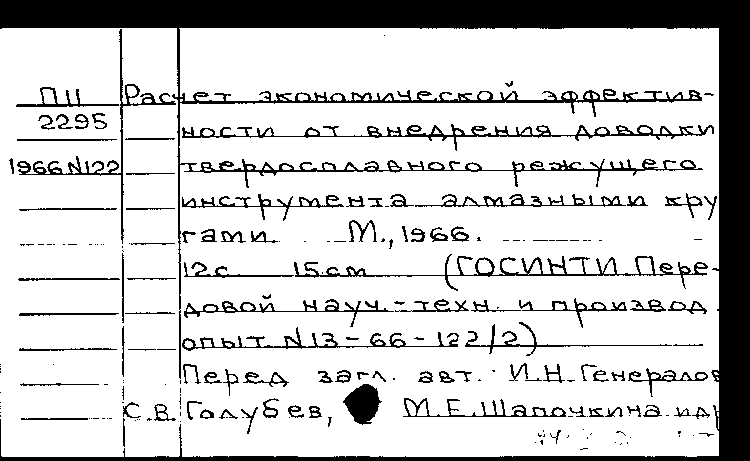 П11 Расчет экономической эффектив-
2295 ности от внедрения доводки
1966 N122 твердосплавного режущего
инструмента алмазными кру
гами М., 1966.
12 с. 15 см (ГОСИНТИ. Пере-
довой науч.-техн. и производ.
опыт. N13-66-122/2)
Перед загл. авт.: И.Н. Генералов
С.В. Голубев, М.Е. Шапочкина и др